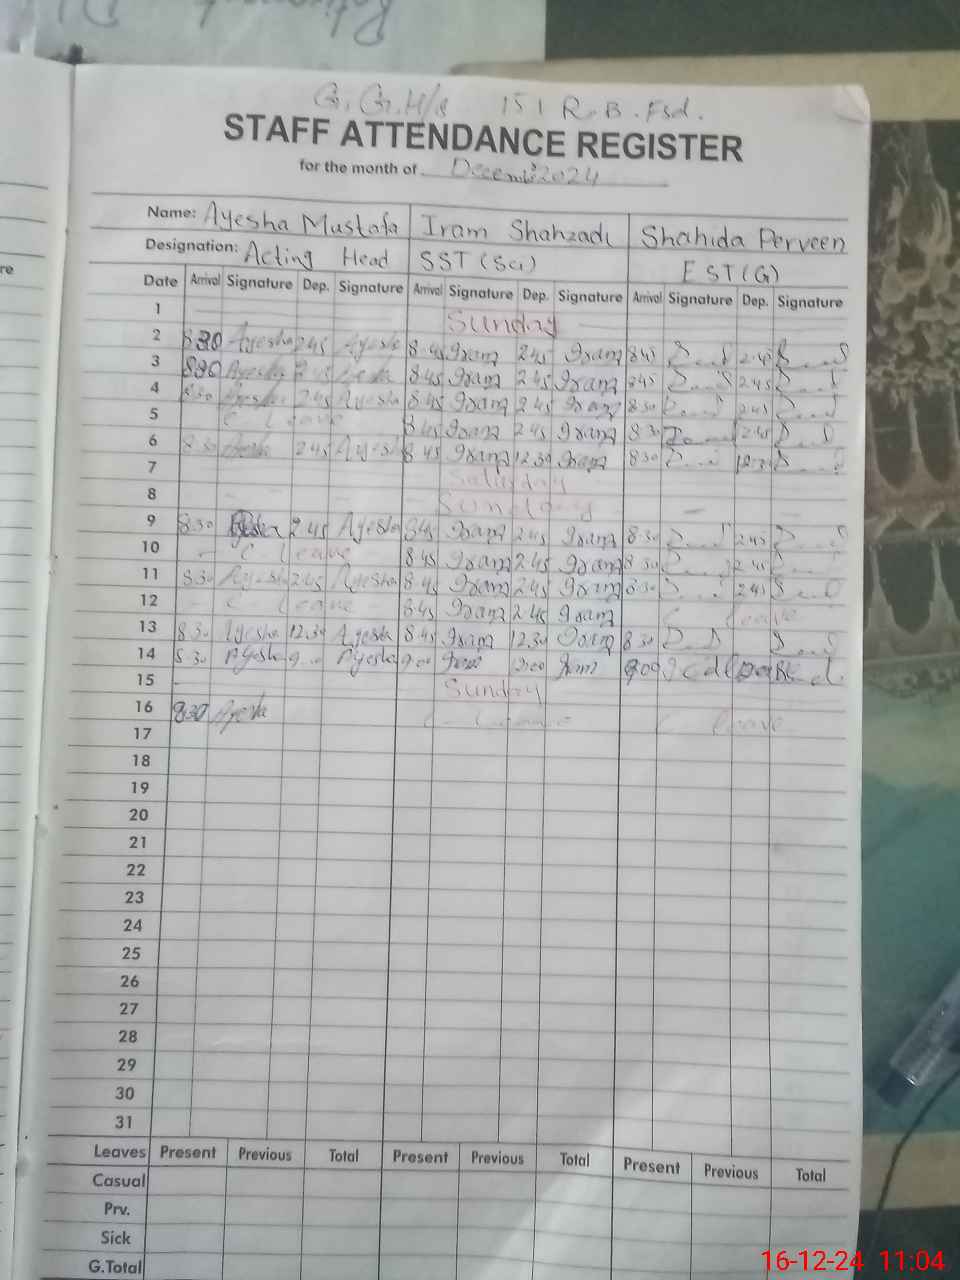 G. G. H/S 151 R.B. Fsd.
STAFF ATTENDANCE REGISTER
for the month of December 2024
Name: Ayesha Mustafa Iram Shahzadi Shahida Perveen
Designation: Acting Head SST (Sci) EST (G)
Date Arrival Signature Dep. Signature Arrival Signature Dep. Signature Arrival Signature Dep. Signature
1 Sunday
2 8:30 Ayesha 2 45 Ayesha 8 45 Iram 2 45 Iram 8 45 2.45
3 830 Ayesha 2 45 Ayesha 8 45 Iram 2 45 Iram 8 45 2.45
4 8.30 Ayesha 2.45 Ayesha 8.45 Iram 2.45 Iram 8 30 2.45
5 C Leave 8 45 Iram 2.45 Iram 8 30 2.45
6 8.30 Ayesha 2.45 Ayesha 8 45 Iram 12.30 Iram 8 30 12.30
7 Saturday
8 Sunday
9 8.30 Ayesha 2.45 Ayesha 8 45 Iram 2.45 Iram 8.30 2.45
10 C Leave 8 45 Iram 2.45 Iram 8 30 2.45
11 8.30 Ayesha 2.45 Ayesha 8.45 Iram 2.45 Iram 8.30 2.45
12 C Leave 8.45 Iram 2.45 Iram C leave
13 8.30 Ayesha 12.30 Ayesha 8.45 Iram 12.30 Iram 8 30
14 8.30 Ayesha Ayesha 9.00 Iram 12.00 Iram 900
15 Sunday
16 830 Ayesha C Leave C leave
17
18
19
20
21
22
23
24
25
26
27
28
29
30
31
Leaves Present Previous Total Present Previous Total Present Previous Total
Casual
Prv.
Sick
G.Total
16-12-24 11:04